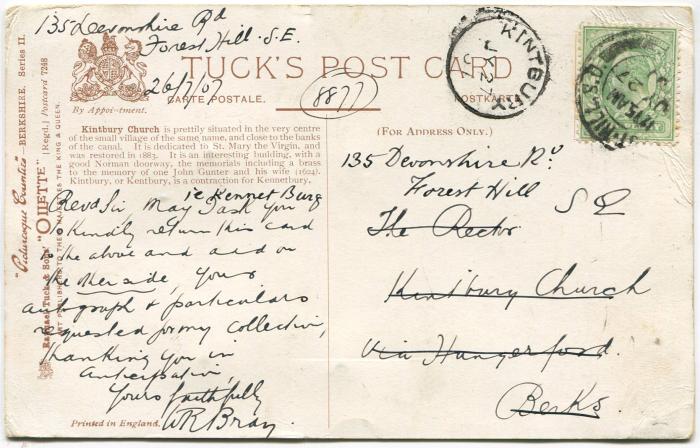 135 Devonshire Rd
Forest Hill. S.E.
26/7/07
By Appointment.
TUCK'S POST CARD
CARTE POSTALE.
POSTKARTE
8877
KINTBURY
JY 27
07
"Picturesque Counties"—BERKSHIRE. Series II.
Raphael Tuck & Sons' "OILETTE" [Regd.] Postcard 7248
ART PUBLISHERS TO THEIR MAJESTIES THE KING & QUEEN.
Kintbury Church is prettily situated in the very centre
of the small village of the same name, and close to the banks
of the canal. It is dedicated to St. Mary the Virgin, and
was restored in 1883. It is an interesting building, with a
good Norman doorway, the memorials including a brass
to the memory of one John Gunter and his wife (1624).
Kintbury, or Kentbury, is a contraction for Kennetbury.
ie Kennet Burg
Revd Sir May I ask you
to kindly return this card
to the above and add on
the other side, your
autograph & particulars
requested for my collection,
thanking you in
anticipation,
Yours faithfully
WR Bray
Printed in England.
(FOR ADDRESS ONLY.)
135 Devonshire Rd
Forest Hill
S E
The Rector
Kintbury Church
via Hungerford.
Berks.